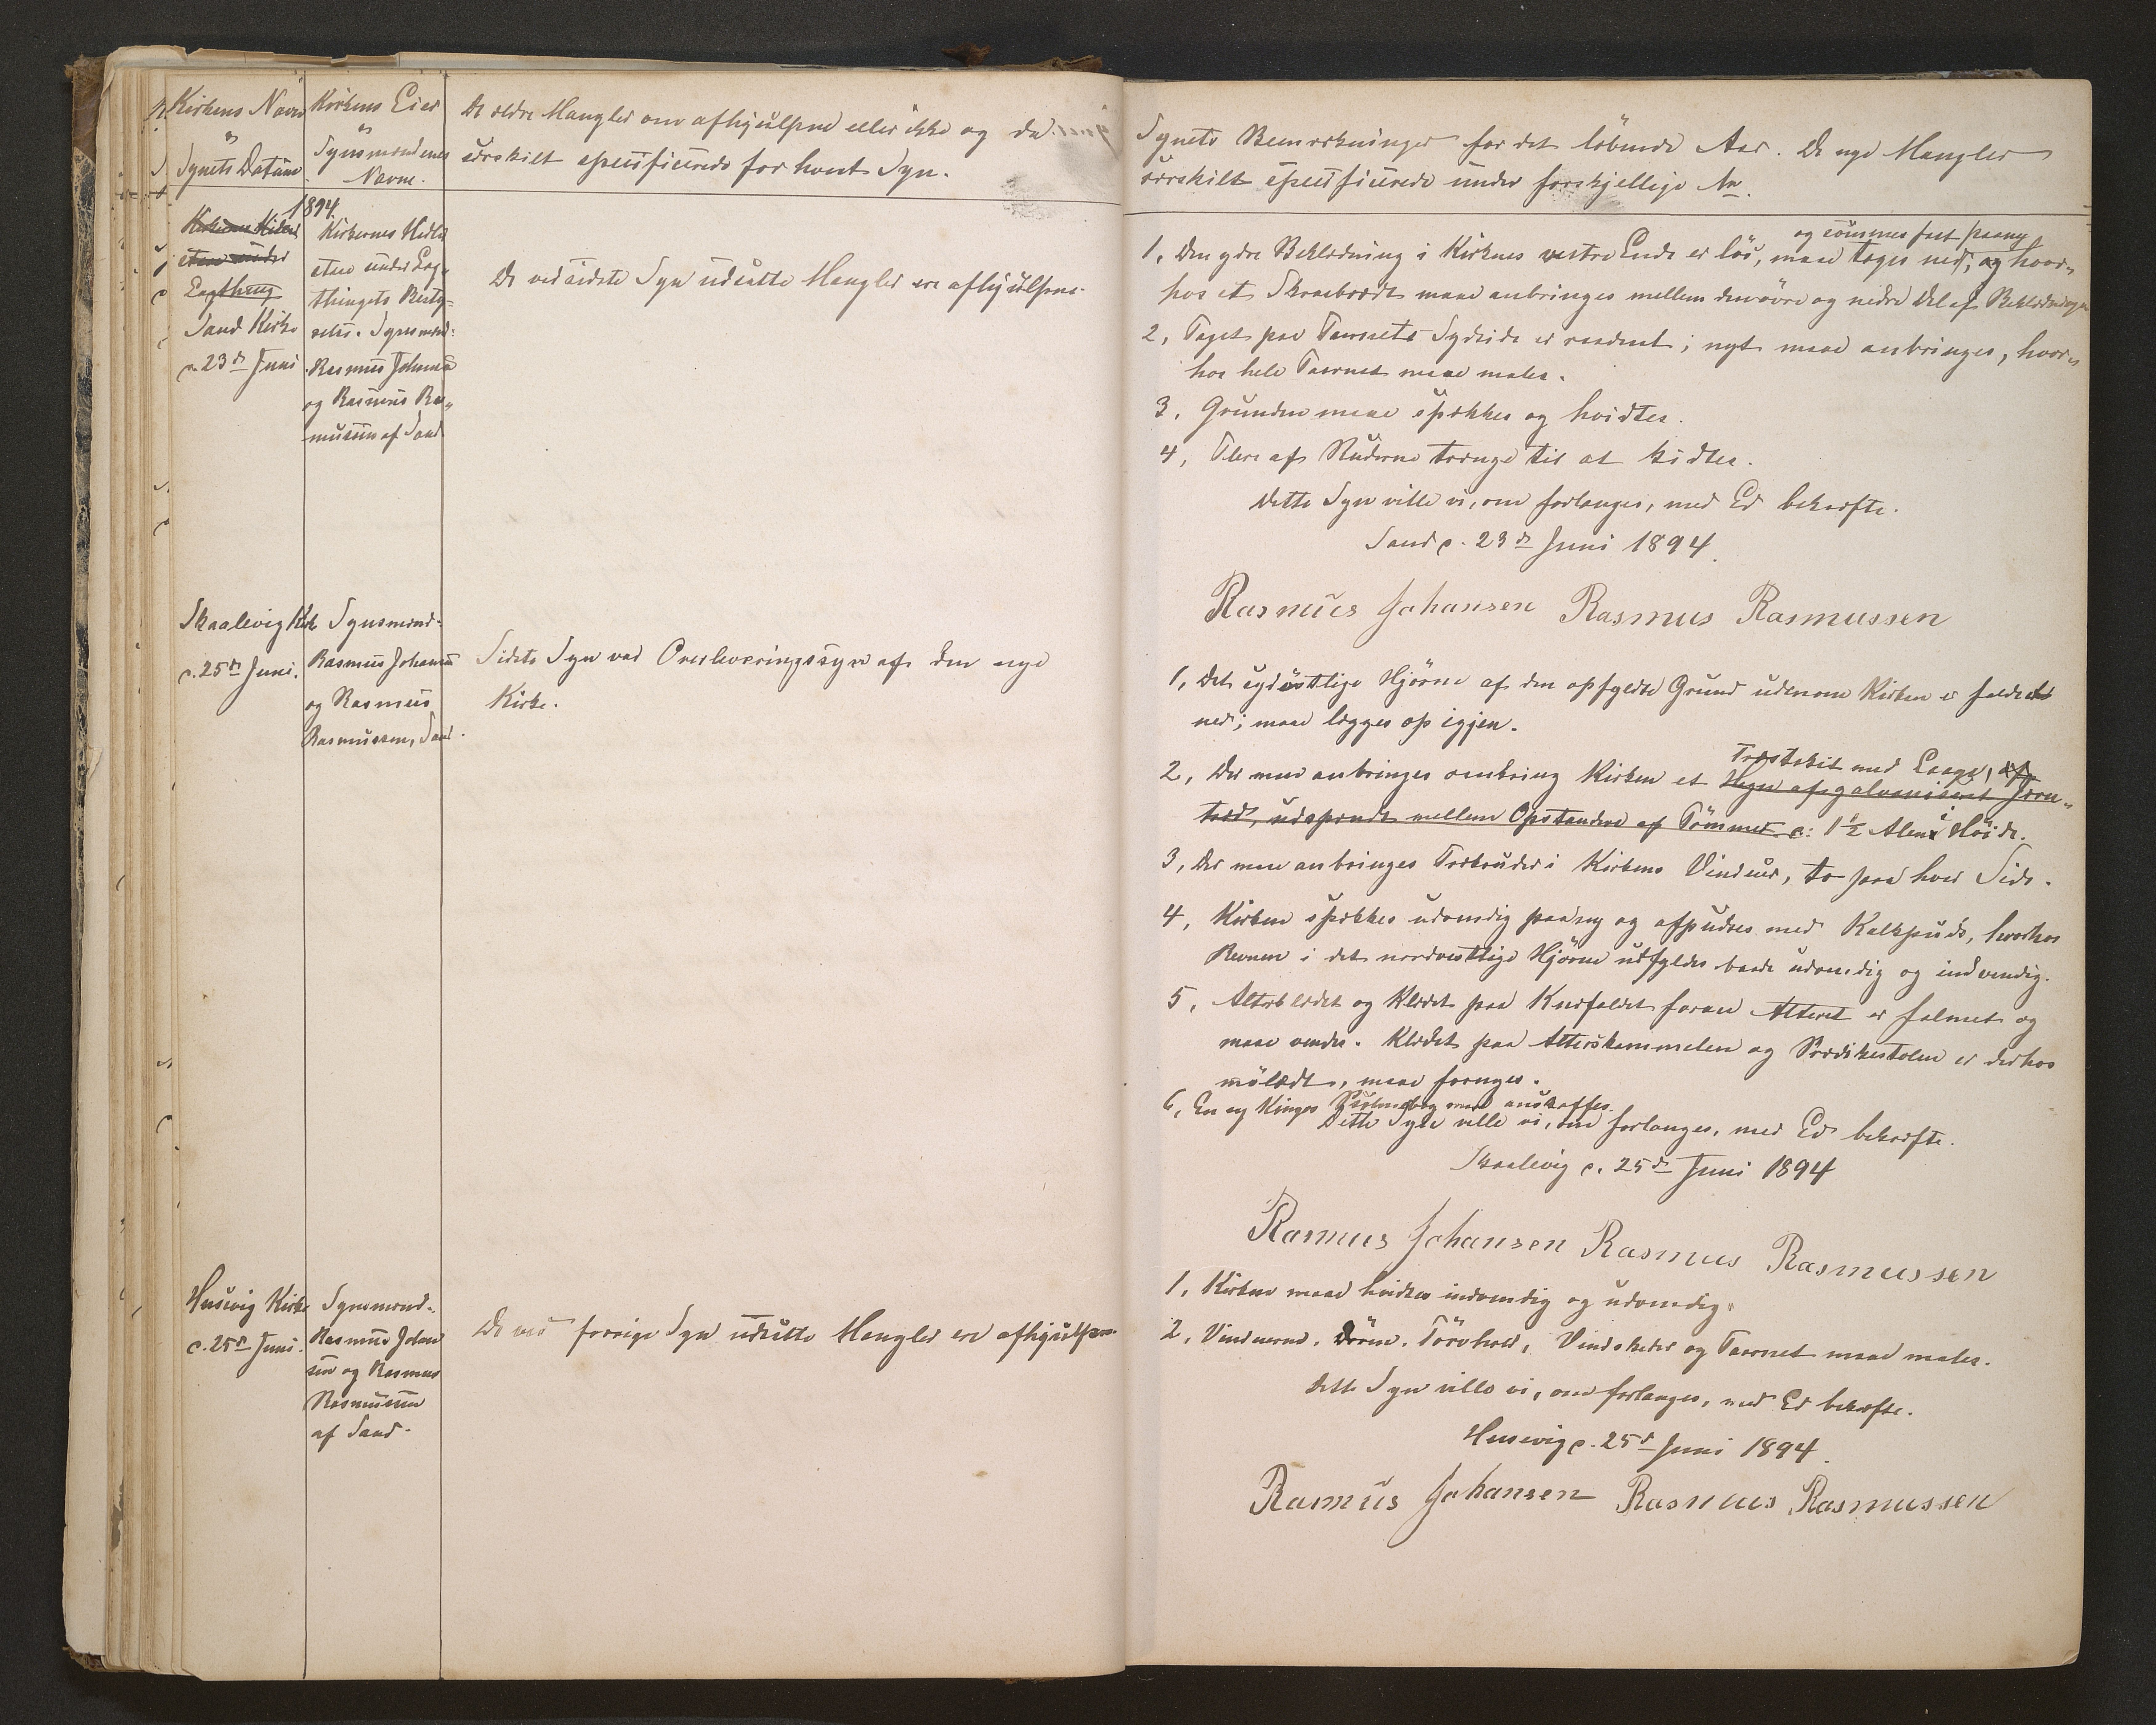 Kirkens Navn
og
Synets Datum
Kirkens Eier
og
Synsmændenes
Navne.
De ældre Mangler om afhjulpne eller ikke og da
særskilt specificerede for hvert Syn.
1894.
Kirkernes Midler
staae under
Lagthing
Sand Kirke
d. 23de Juni
Kirkernes Midler
staae under Lag„
thingets Besty„
relse. Synsmænd:
Rasmus Johansen
og Rasmus Ras„
mussen af Sand
De ved sidste Syn udsatte Mangler ere afhjulpne.
Skaalevig Kirke
d. 25de Juni.
Synsmænd:
Rasmus Johansen
og Rasmus
Rasmussen, Sand.
Sidste Syn var Overleveringssyn af den nye
Kirke.
Husevig Kirke
d. 25de Juni.
Synsmænd:
Rasmus Johan
sen og Rasmus
Rasmussen
af Sand.
De ved forrige Syn udsatte Mangler ere afhjulpne.
Synets Bemærkninger for det løbende Aar. De nye Mangler
særskilt specificerede under forskjellige Nr.
og sömmes fast paany
1, Den ydre Beklædning i Kirkens vestre Ende er lös, maa tages ned, og hvor„
hos et Skraabrædt maa anbringes mellem den övre og nedre Del af Beklædningen
2, Taget paa Taarnets Sydside er raadent; nyt maa anbringes, hvor„
hos hele Taarnet maa males.
3, Grunden maa spækkes og hvidtes.
4, Flere af Ruderne trænge til at kidtes.
Dette Syn ville vi, om forlanges, med Ed bekræfte.
Sand d. 23de Juni 1894.
Rasmus Johansen Rasmus Rasmussen
1, Det sydöstlige Hjörne af den opfyldte Grund udenom Kirken er faldet
ned; maa lægges op igjen.
Træstakit med Laage, af
2, Der maa anbringes omkring Kirken et Hegn af galvaniseret Jern„
traad, udspændt mellem Opstandere af Tömmer c: 1½ Alen i Höide.
3, Der maa anbringes Trækruder i Kirkens Vinduer, to paa hver Side.
4, Kirken spækkes udvendig paany og afpudses med Kalkpuds, hvorhos
Revnen i det nordvestlige Hjörne udfyldes baade udvendig og indvendig.
5, Alterklædet og Klædet paa Knæfaldet foran Alteret er falmet og
maa vendes. Klædet paa Alterskammelen og Prædikestolen er derhos
mölædt, maa fornyes.
6, En ny Kingos Psalmebog maa anskaffes.
Dette Syn ville vi, om forlanges, med Ed bekræfte.
Skaalevig d. 25de Juni 1894
Rasmus Johansen Rasmus Rasmussen
1, Kirken maa hvidtes indvendig og udvendig.
2, Vinduerne, Dören, Törvhold, Vindskeder og Taarnet maa males.
Dette Syn ville vi, om forlanges, med Ed bekræfte.
Husevig d. 25de Juni 1894.
Rasmus Johansen Rasmus Rasmussen